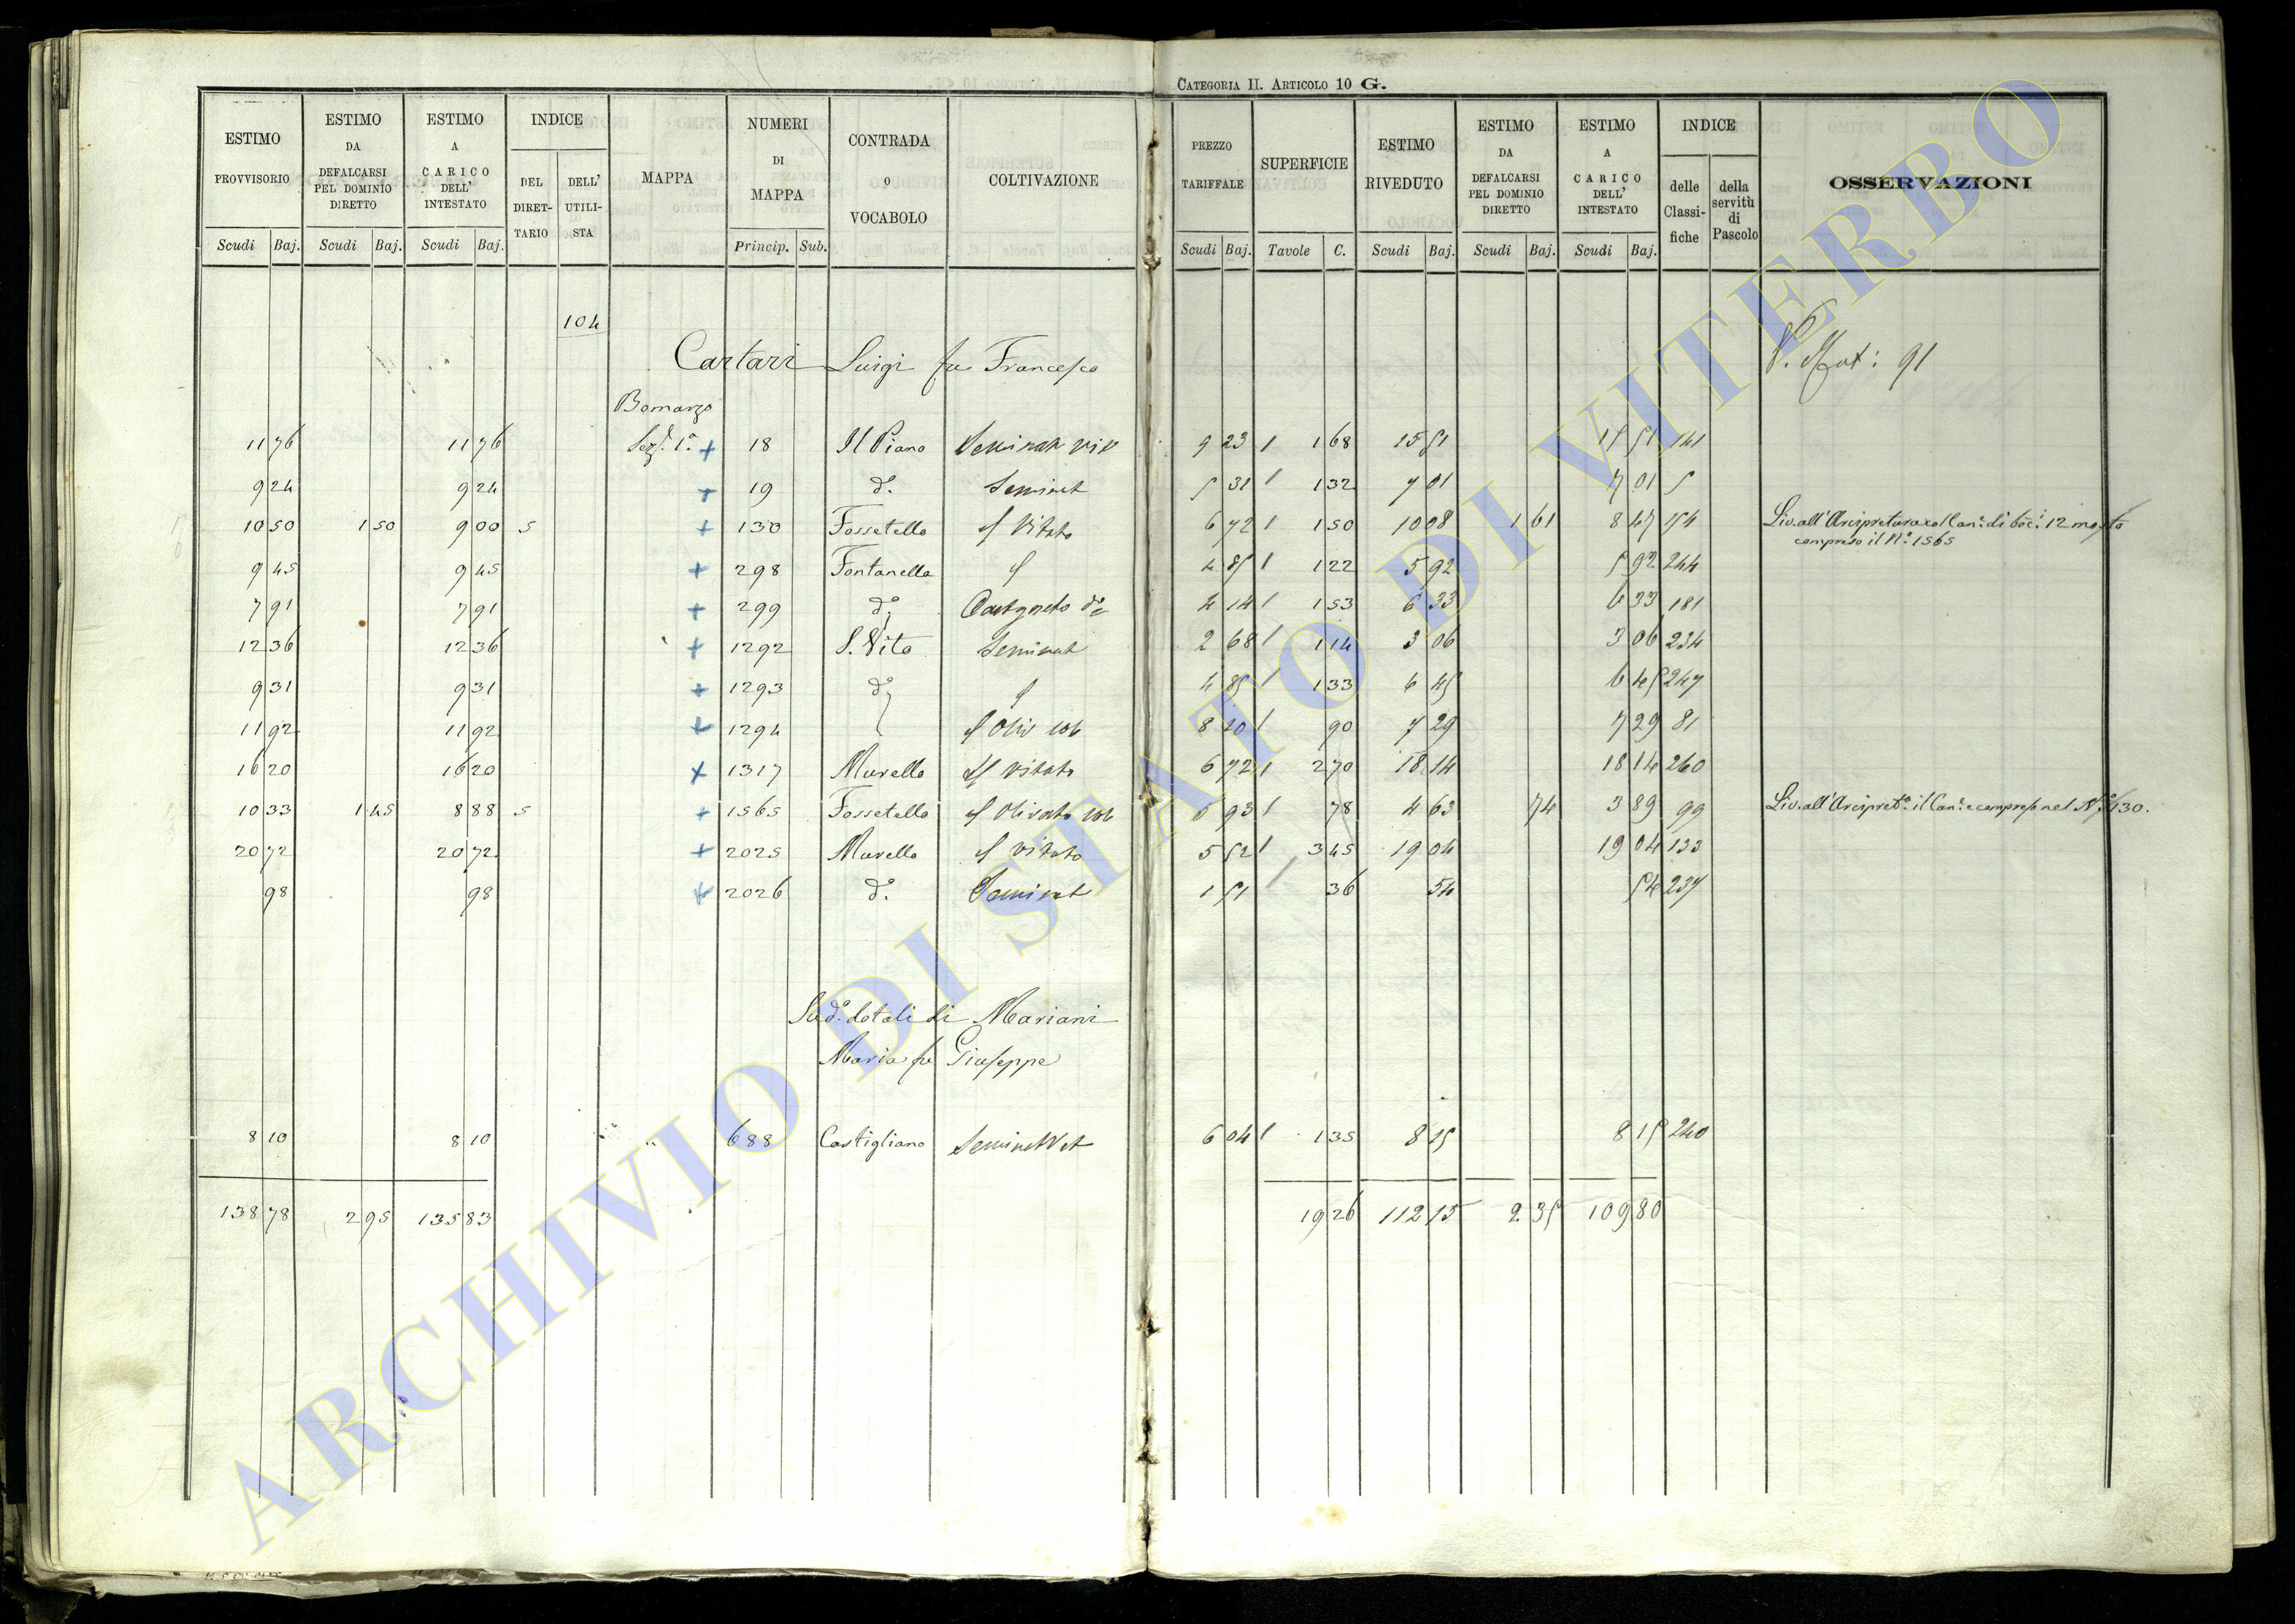 CATEGORIA II. ARTICOLO 10 G.
ESTIMO PROVVISORIO | ESTIMO DA DEFALCARSI PEL DOMINIO DIRETTO | ESTIMO A CARICO DELL' INTESTATO | INDICE | MAPPA | NUMERI DI MAPPA | CONTRADA O VOCABOLO | COLTIVAZIONE | PREZZO TARIFFALE | SUPERFICIE | ESTIMO RIVEDUTO | ESTIMO DA DEFALCARSI PEL DOMINIO DIRETTO | ESTIMO A CARICO DELL' INTESTATO | INDICE | OSSERVAZIONI
DEL DIRETTARIO | DELL' UTILISTA | delle Classifiche | della servitù di Pascolo
Scudi | Baj. | Scudi | Baj. | Scudi | Baj. | Princip. | Sub. | Scudi | Baj. | Tavole | C. | Scudi | Baj. | Scudi | Baj. | Scudi | Baj.
104
Cartari Luigi fu Francesco | 91
Bomarzo
11 76 | 11 76 | Sez. 1ª + | 18 | Il Piano | 9 23 | 1 68 | 15 51 | 15 51 | 141
9 24 | 9 24 | + | 19 | dº. | Seminat | 5 31 | 1 32 | 7 01 | 7 01 | 5
10 50 | 1 50 | 9 00 | 5 | + | 130 | Fossetello | Vitato | 6 72 | 1 50 | 10 08 | 1 61 | 8 47 | 154 | Liv. all'Arcipretura col Can. di boc. 12 mosto
compreso il Nº. 1565
9 45 | 9 45 | + | 298 | Fontanella | 4 85 | 1 22 | 5 92 | 5 92 | 244
7 91 | 7 91 | + | 299 | dº. | Castgneto | 4 14 | 1 53 | 6 33 | 6 33 | 181
12 36 | 12 36 | + | 1292 | S. Vito | Seminat | 2 68 | 1 14 | 3 06 | 3 06 | 234
9 31 | 9 31 | + | 1293 | dº | 4 85 | 1 33 | 6 45 | 6 45 | 247
11 92 | 11 92 | + | 1294 | Oliv | 8 10 | 90 | 7 29 | 7 29 | 81
16 20 | 16 20 | + | 1317 | Murella | vitato | 6 72 | 2 70 | 18 14 | 18 14 | 260
10 33 | 1 45 | 8 88 | 5 | + | 1565 | Fossetello | Olivato | 5 93 | 78 | 4 63 | 74 | 3 89 | 99 | Liv. all'Arcipretª. il Can. e compreso nel Nº. 130.
20 72 | 20 72 | + | 2025 | Murella | vitato | 5 52 | 3 45 | 19 04 | 19 04 | 133
98 | 98 | + | 2026 | dº. | Seminat | 1 51 | 36 | 54 | 54 | 237
Sudº. dotali di Mariani
Maria fu Giuseppe
8 10 | 8 10 | " | 688 | Castigliano | Seminat Vit | 6 04 | 1 35 | 8 15 | 8 15 | 240
138 78 | 2 95 | 135 83 | 19 26 | 112 15 | 2 35 | 109 80
ARCHIVIO DI STATO DI VITERBO